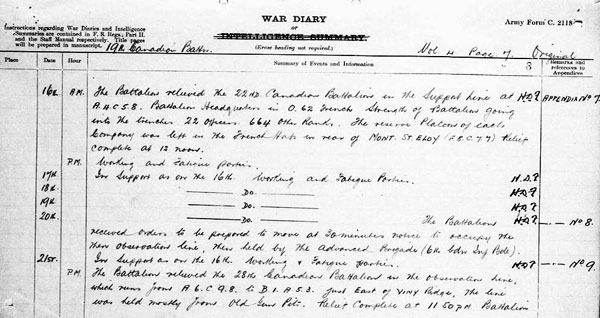 WAR DIARY
OR
INTELLIGENCE SUMMARY.
(Erase heading not required.)
Army Form C. 2118
Instructions regarding War Diaries and Intelligence
Summaries are contained in F. S. Regs., Part II.
and the Staff Manual respectively. Title pages
will be prepared in manuscript.
19th Canadian Battn.
Vol 4 Page 7. Original
Place Date Hour Summary of Events and Information Remarks and references to Appendices
16th. A.M. The Battalion relieved the 22nd Canadian Battalion in the Support Line at APPENDIX No 7.
A.4.C.5.8. Battalion Headquarters in O.62 French Strength of Battalion going
into the trenches 22 officers. 664 other Ranks. The reserve Platoons of each
Company was left in the French Huts in rear of MONT. ST. ELOY (F.8.C.7.7) Relief
Complete at 12 noon.
P.M. Working and Fatigue parties.
17th. In Support as on the 16th Working and Fatigue Parties.
18th. Do.
19th. Do.
20th. Do. The Battalion No 8.
received orders to be prepared to move at 30 minutes notice to occupy the
then observation line, then held by the Advanced Brigade (6th Cdn Inf Bde).
21st. In Support as on the 16th. Working & Fatigue parties. No 9.
P.M. The Battalion relieved the 28th Canadian Battalion in the observation line,
which runs from A.6.C.9.8. to B.1.A.5.3. just East of VIMY Ridge, the line
was held mostly from Old Gun Pits. Relief Complete at 11.50 PM Battalion